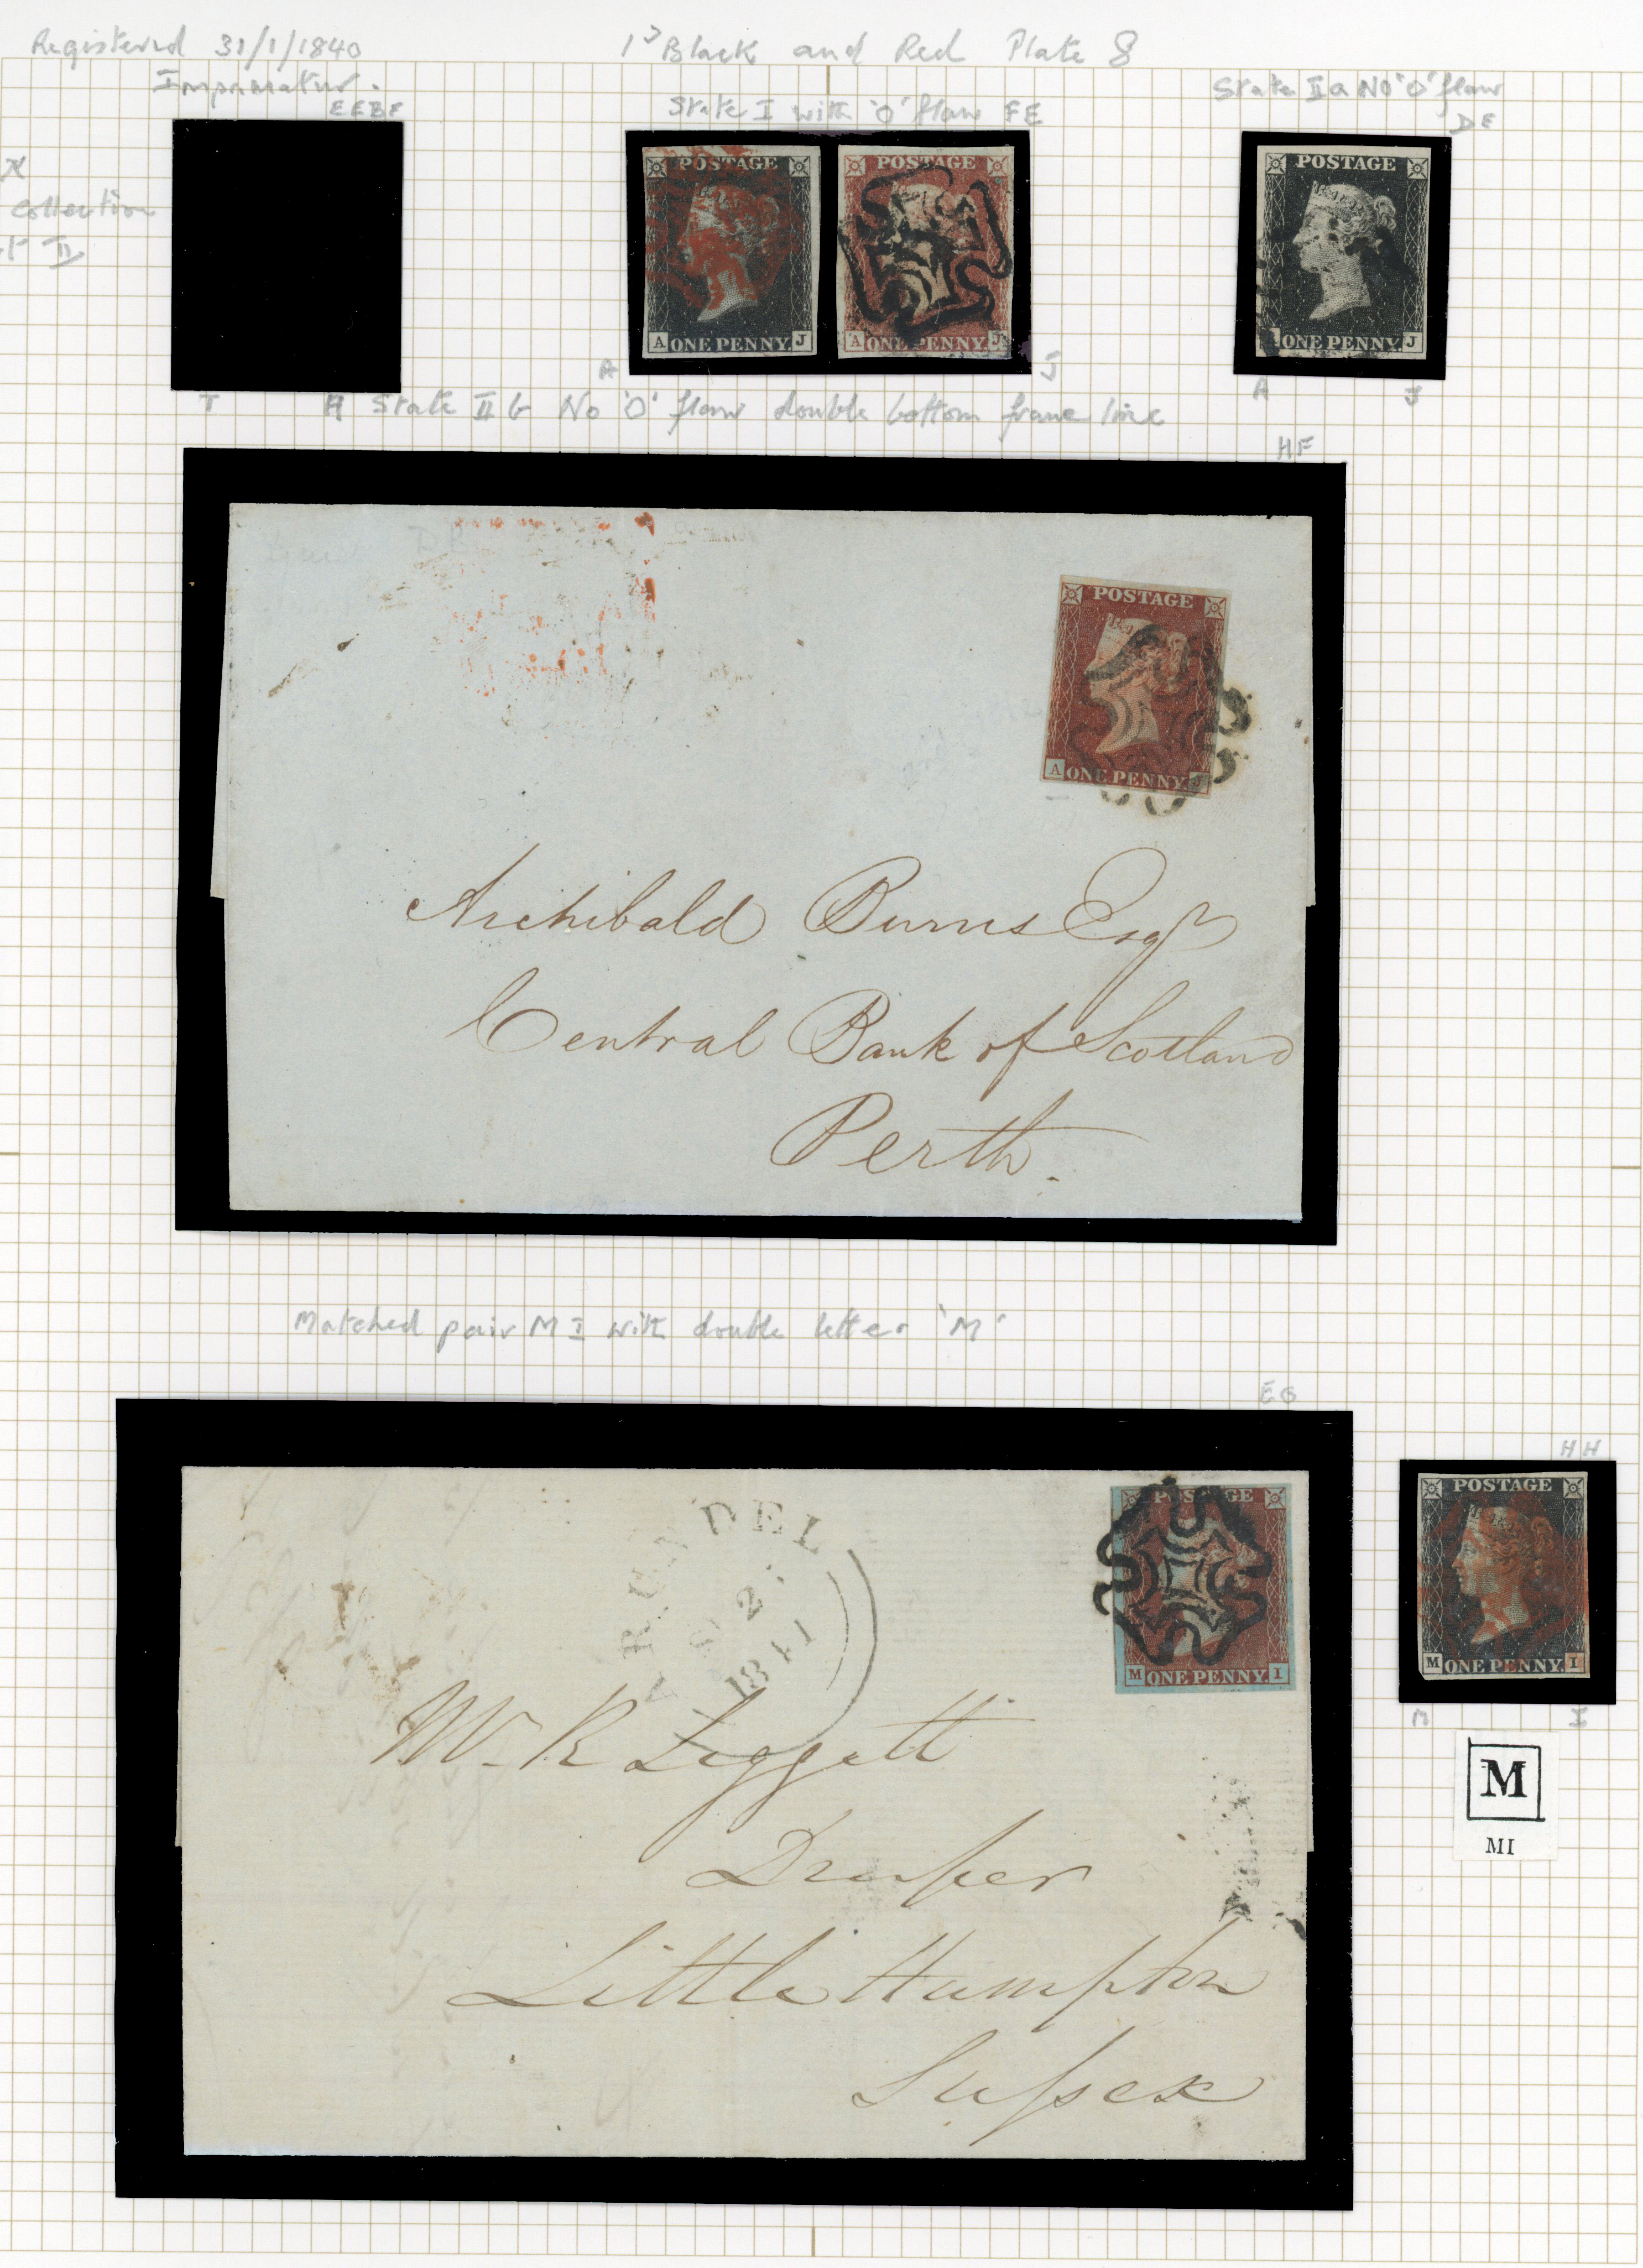 Registered 31/1/1840
1D Black and Red Plate 8
Imprimatur.
EEBF
State I with 'O' flaw FE
State IIa No 'O' flaw
DE
collection
II
POSTAGE
A ONE PENNY. J
POSTAGE
A ONE PENNY. J
POSTAGE
ONE PENNY. J
A J
A J
T H State II b No 'O' flaw double bottom frame line
HF
POSTAGE
A ONE PENNY. J
Archibald Burns Esqr
Central Bank of Scotland
Perth.
Matched pair MI with double letter 'M'
EG
HH
ARUNDEL
2
1841
POSTAGE
M ONE PENNY. I
POSTAGE
M ONE PENNY. I
M I
Mr. R Leggatt
Draper
Little Hampton
Sussex
M
MI